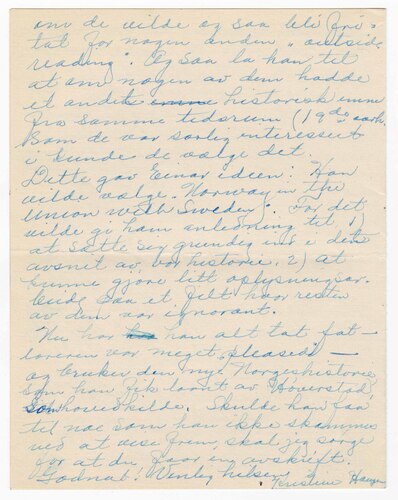 om de vilde og saa bli fri-
tat for nogen anden „outside
reading". Og saa la han til
at om nogen av dem hadde
et andet emne historisk emne
fra samme tidsrum (19de aarh.
som de var særlig interessert
i kunde de vælge det.
Dette gav Einar ideen: Han
vilde vælge "Norway in the
Union with Sweden". For det
vilde gi ham anledning til 1)
at sætte sig grundig ind i den
avsnit av vor historie. 2) at
kunne gjøre litt oplysningsar-
beide paa et felt hvor resten
av dem var ignorant.
Nu har han alt tat fat —
læreren var meget „pleased" —
og bruker den nye Norgeshistorie
som han fik laant av Hoverstad
som hovedkilde. Skulde han faa
til noe som han ikke skammer
ved at vise frem, skal jeg sørge
for at du faar en avskrift.
Godnat! Venlig hilsen Kristine Haugen